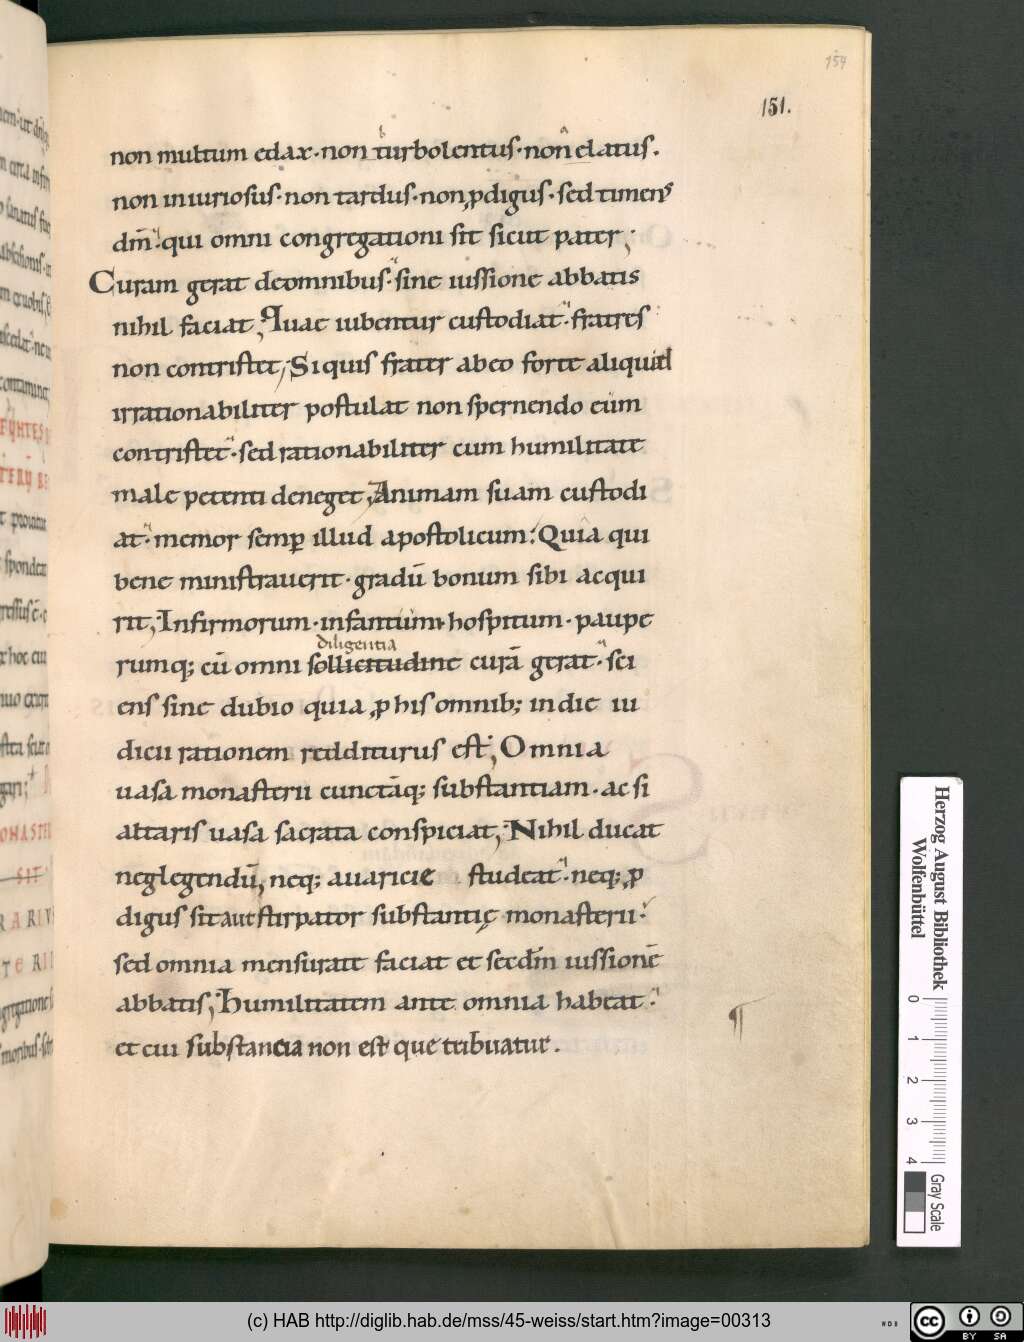 154
151.
non multum edax · non turbolentus · non elatus .
non iniuriosus · non tardus · non ꝓdigus · sed timens
dm̄ · qui omni congregationi sit sicut pater ;
Curam gerat deomnibus · sine iussione abbatis
nihil faciat , Quae iubentur custodiat · fratres
non contristet ; Si quis frater abeo forte aliquid
irrationabiliter postulat non spernendo eum
contristet · sed rationabiliter cum humilitate
male petenti deneget , Animam suam custodi
at · memor semꝑ illud apostolicum : Quia qui
bene ministrauerit · gradū bonum sibi acqui
rit , Infirmorum · infantum · hospitum · paupe
diligentia
rumq; cū omni sollicitudine curā gerat · sci
ens sine dubio quia ꝓ his omnib; in die iu
dicii rationem redditurus est ; Omnia
uasa monasterii cunctāq; substantiam · ac si
altaris uasa sacrata conspiciat , Nihil ducat
neglegendū , neq; auaricie studeat · neq; ꝓ
digus sit aut stirpator substantię monasterii ·
sed omnia mensurate faciat et secdm̄ iussionē
abbatis , Humilitatem ante omnia habeat ·
et cui substancia non est que tribuatur .
Herzog August Bibliothek
Wolfenbüttel
0 1 2 3 4
Gray Scale
(c) HAB http://diglib.hab.de/mss/45-weiss/start.htm?image=00313
cc BY SA